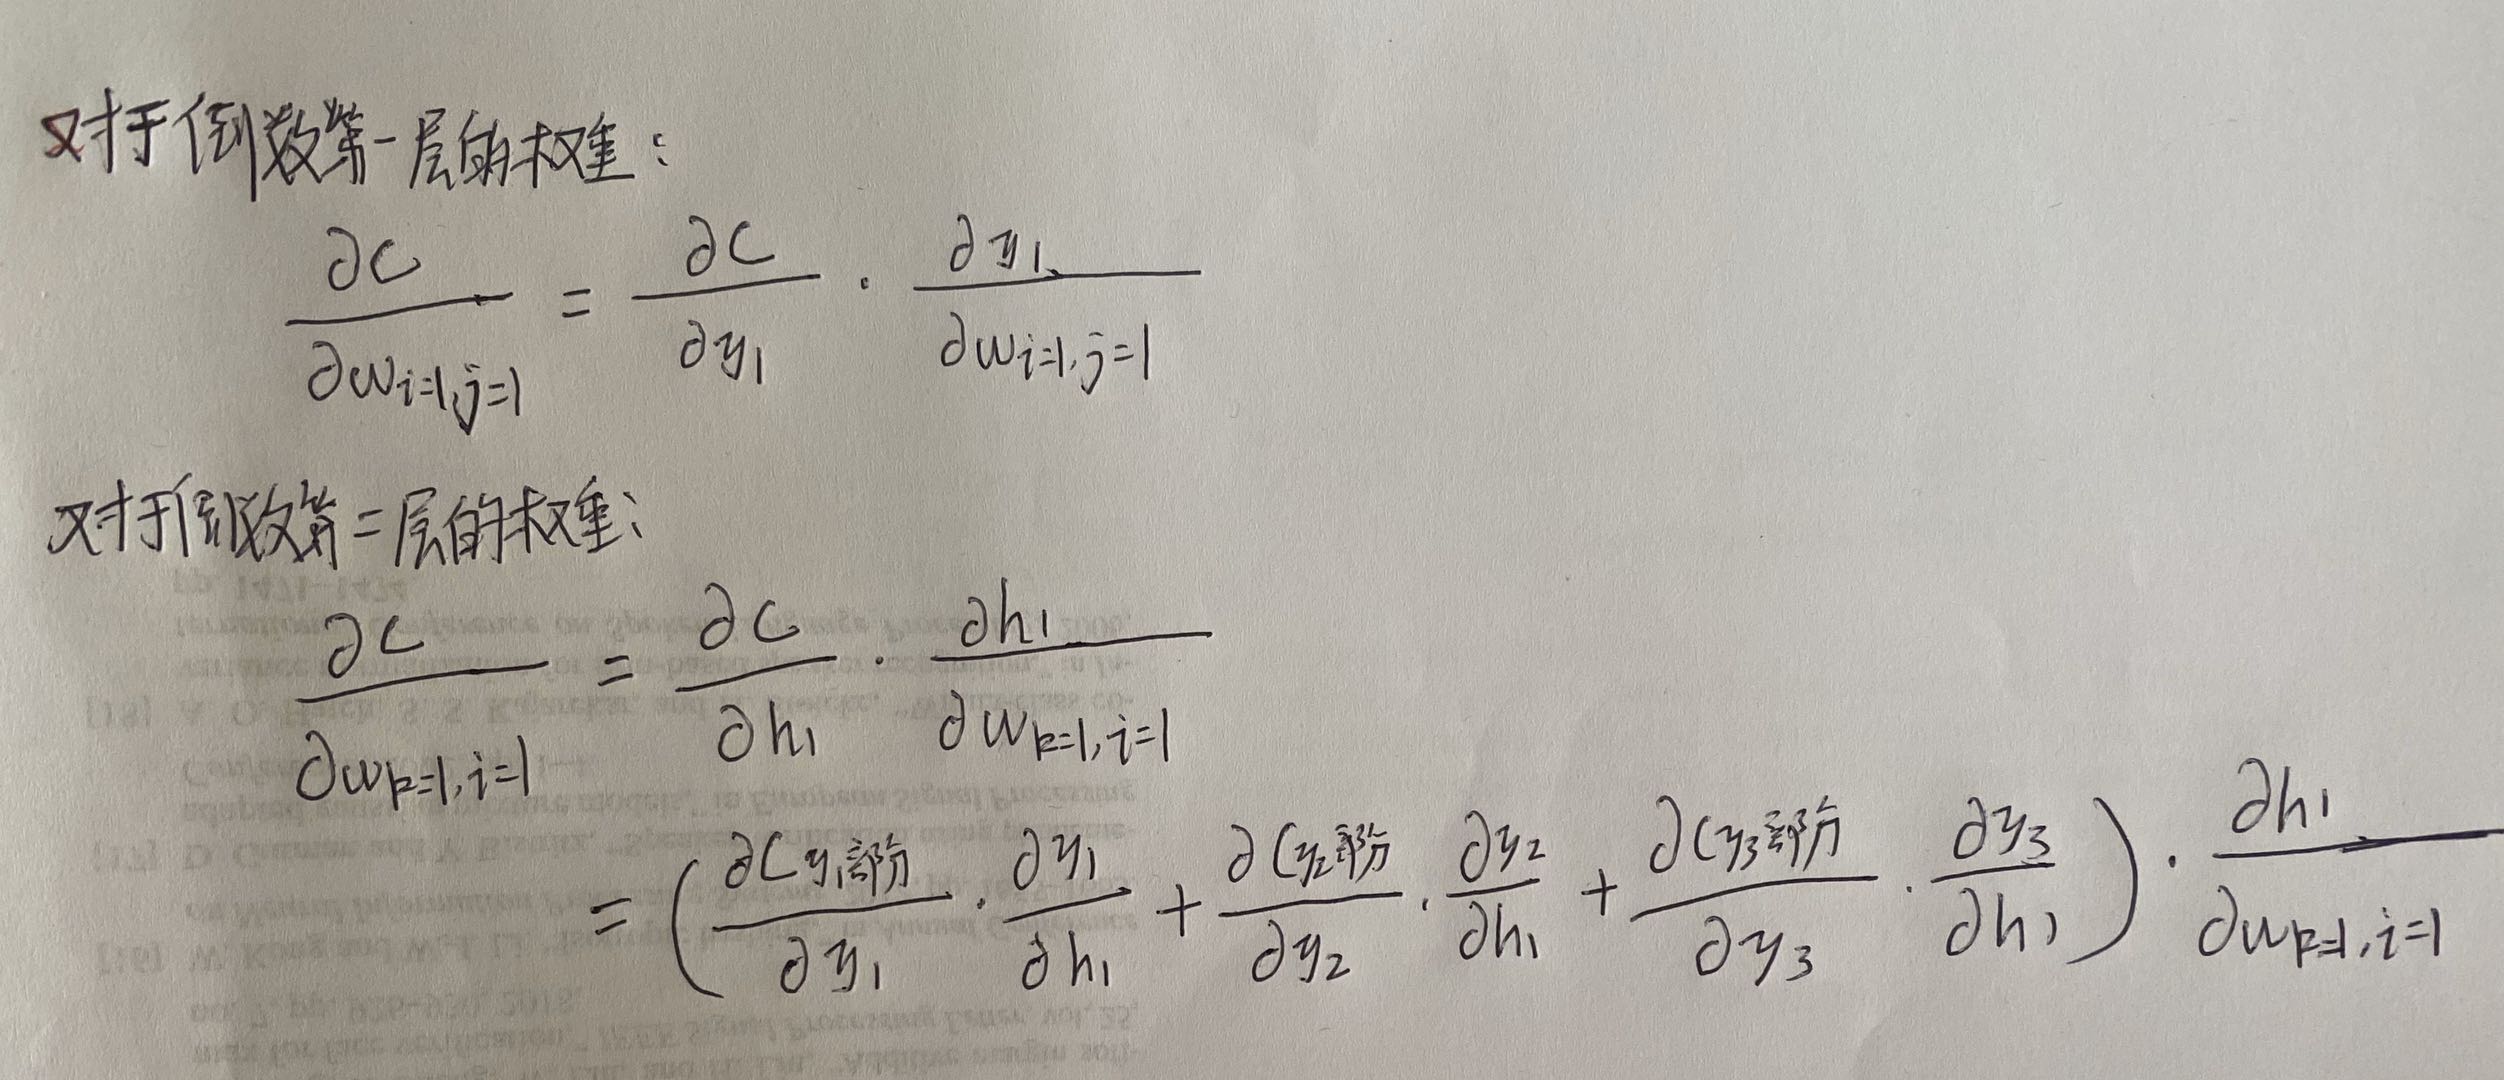 对于倒数第一层的权重：
∂C/∂w_{i=1,j=1} = ∂C/∂y₁ · ∂y₁/∂w_{i=1,j=1}
对于倒数第二层的权重：
∂C/∂w_{k=1,i=1} = ∂C/∂h₁ · ∂h₁/∂w_{k=1,i=1}
= (∂C_{y₁部分}/∂y₁ · ∂y₁/∂h₁ + ∂C_{y₂部分}/∂y₂ · ∂y₂/∂h₁ + ∂C_{y₃部分}/∂y₃ · ∂y₃/∂h₁) · ∂h₁/∂w_{k=1,i=1}